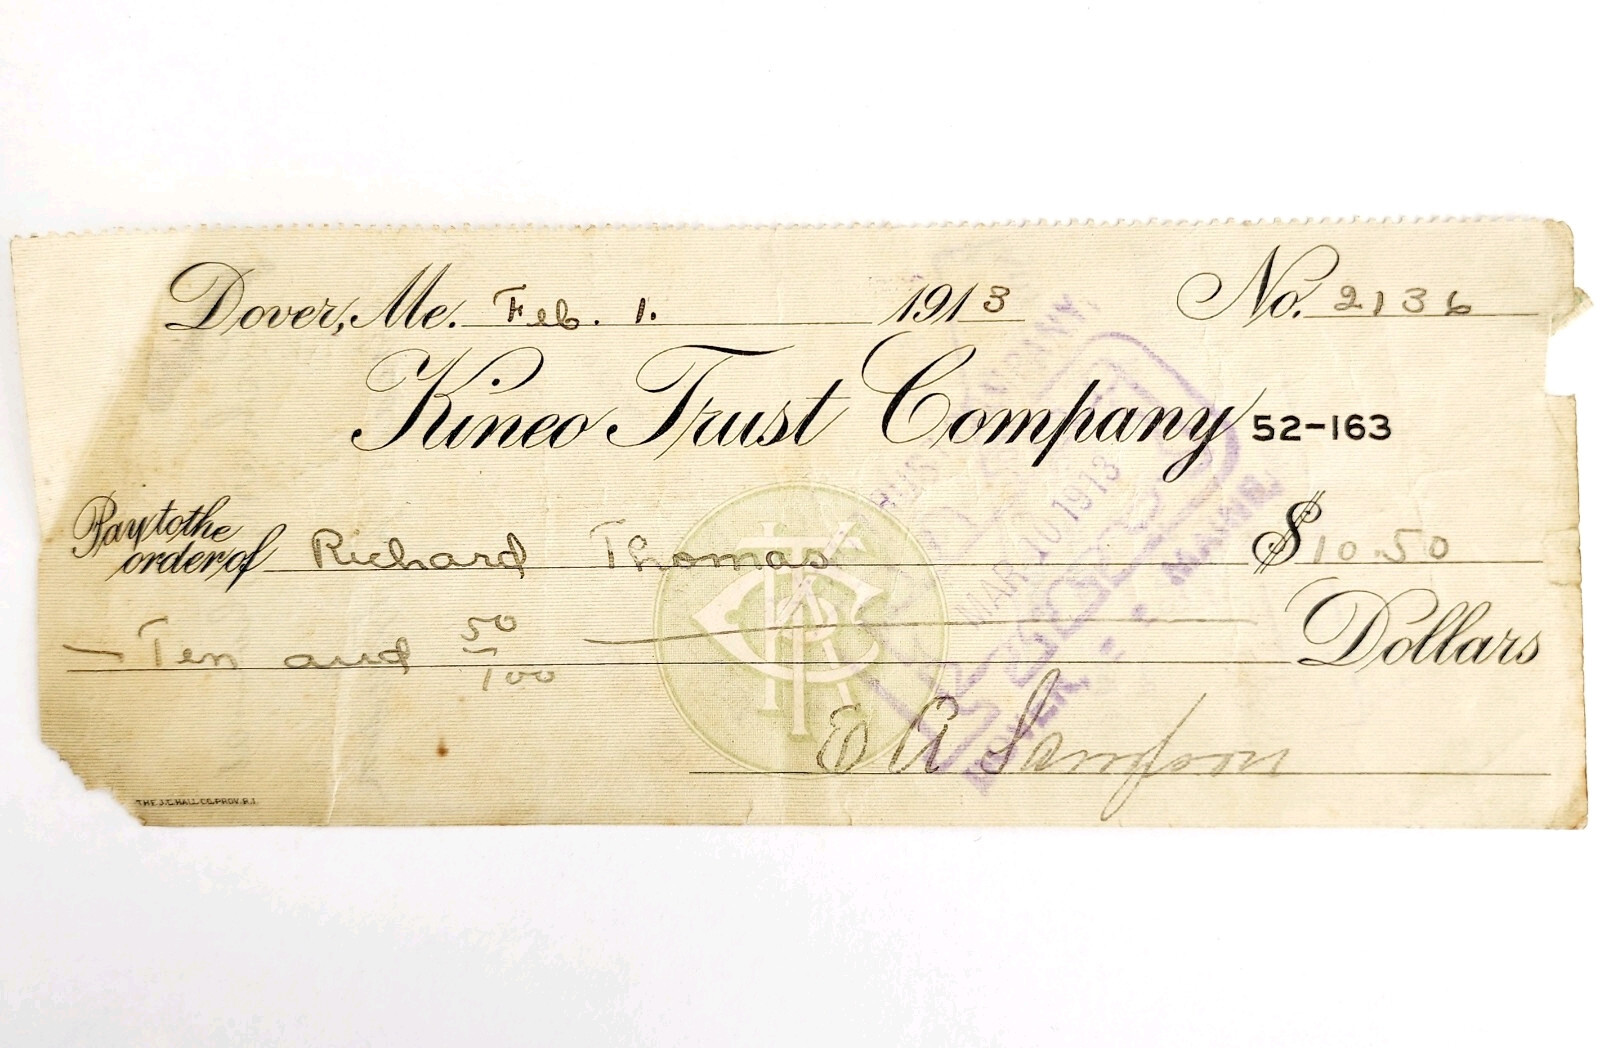 Dover, Me. Feb. 1. 1913 No. 2136
Kineo Trust Company 52-163
Pay to the
order of Richard Thomas $10.50
Ten and 50/100 Dollars
E A Sampson
THE J.C. HALL CO. PROV. R.I.
TRUST COMPANY,
MAR 10 1913
DOVER, MAINE.